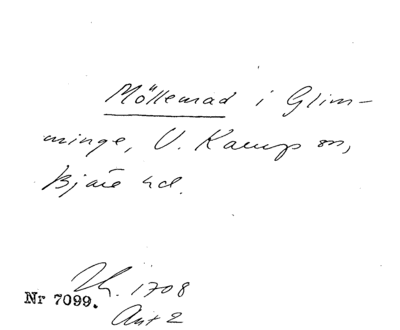 Möllemad i Glim-
minge, V. Karup sn,
Bjäre hd.
1708
Nr 7099.
Ant 2